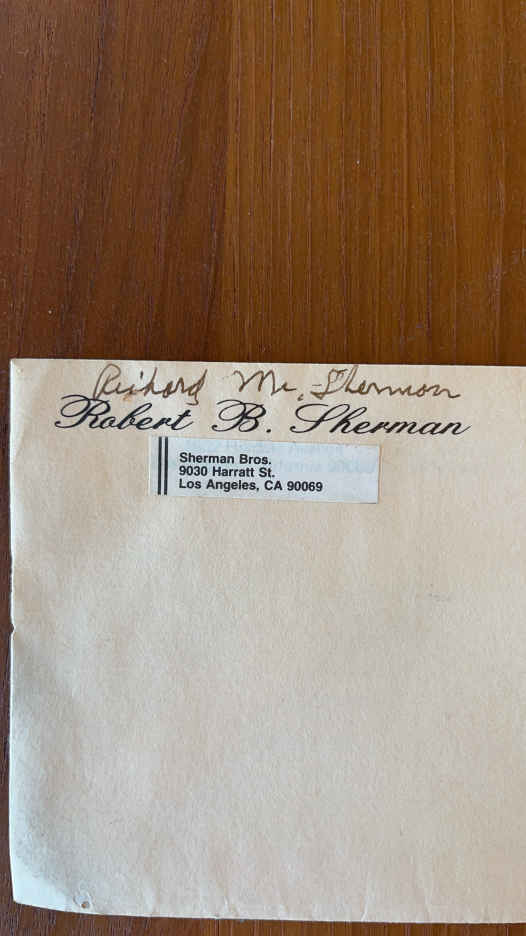 Richard M. Sherman
Robert B. Sherman
Sherman Bros.
9030 Harratt St.
Los Angeles, CA 90069